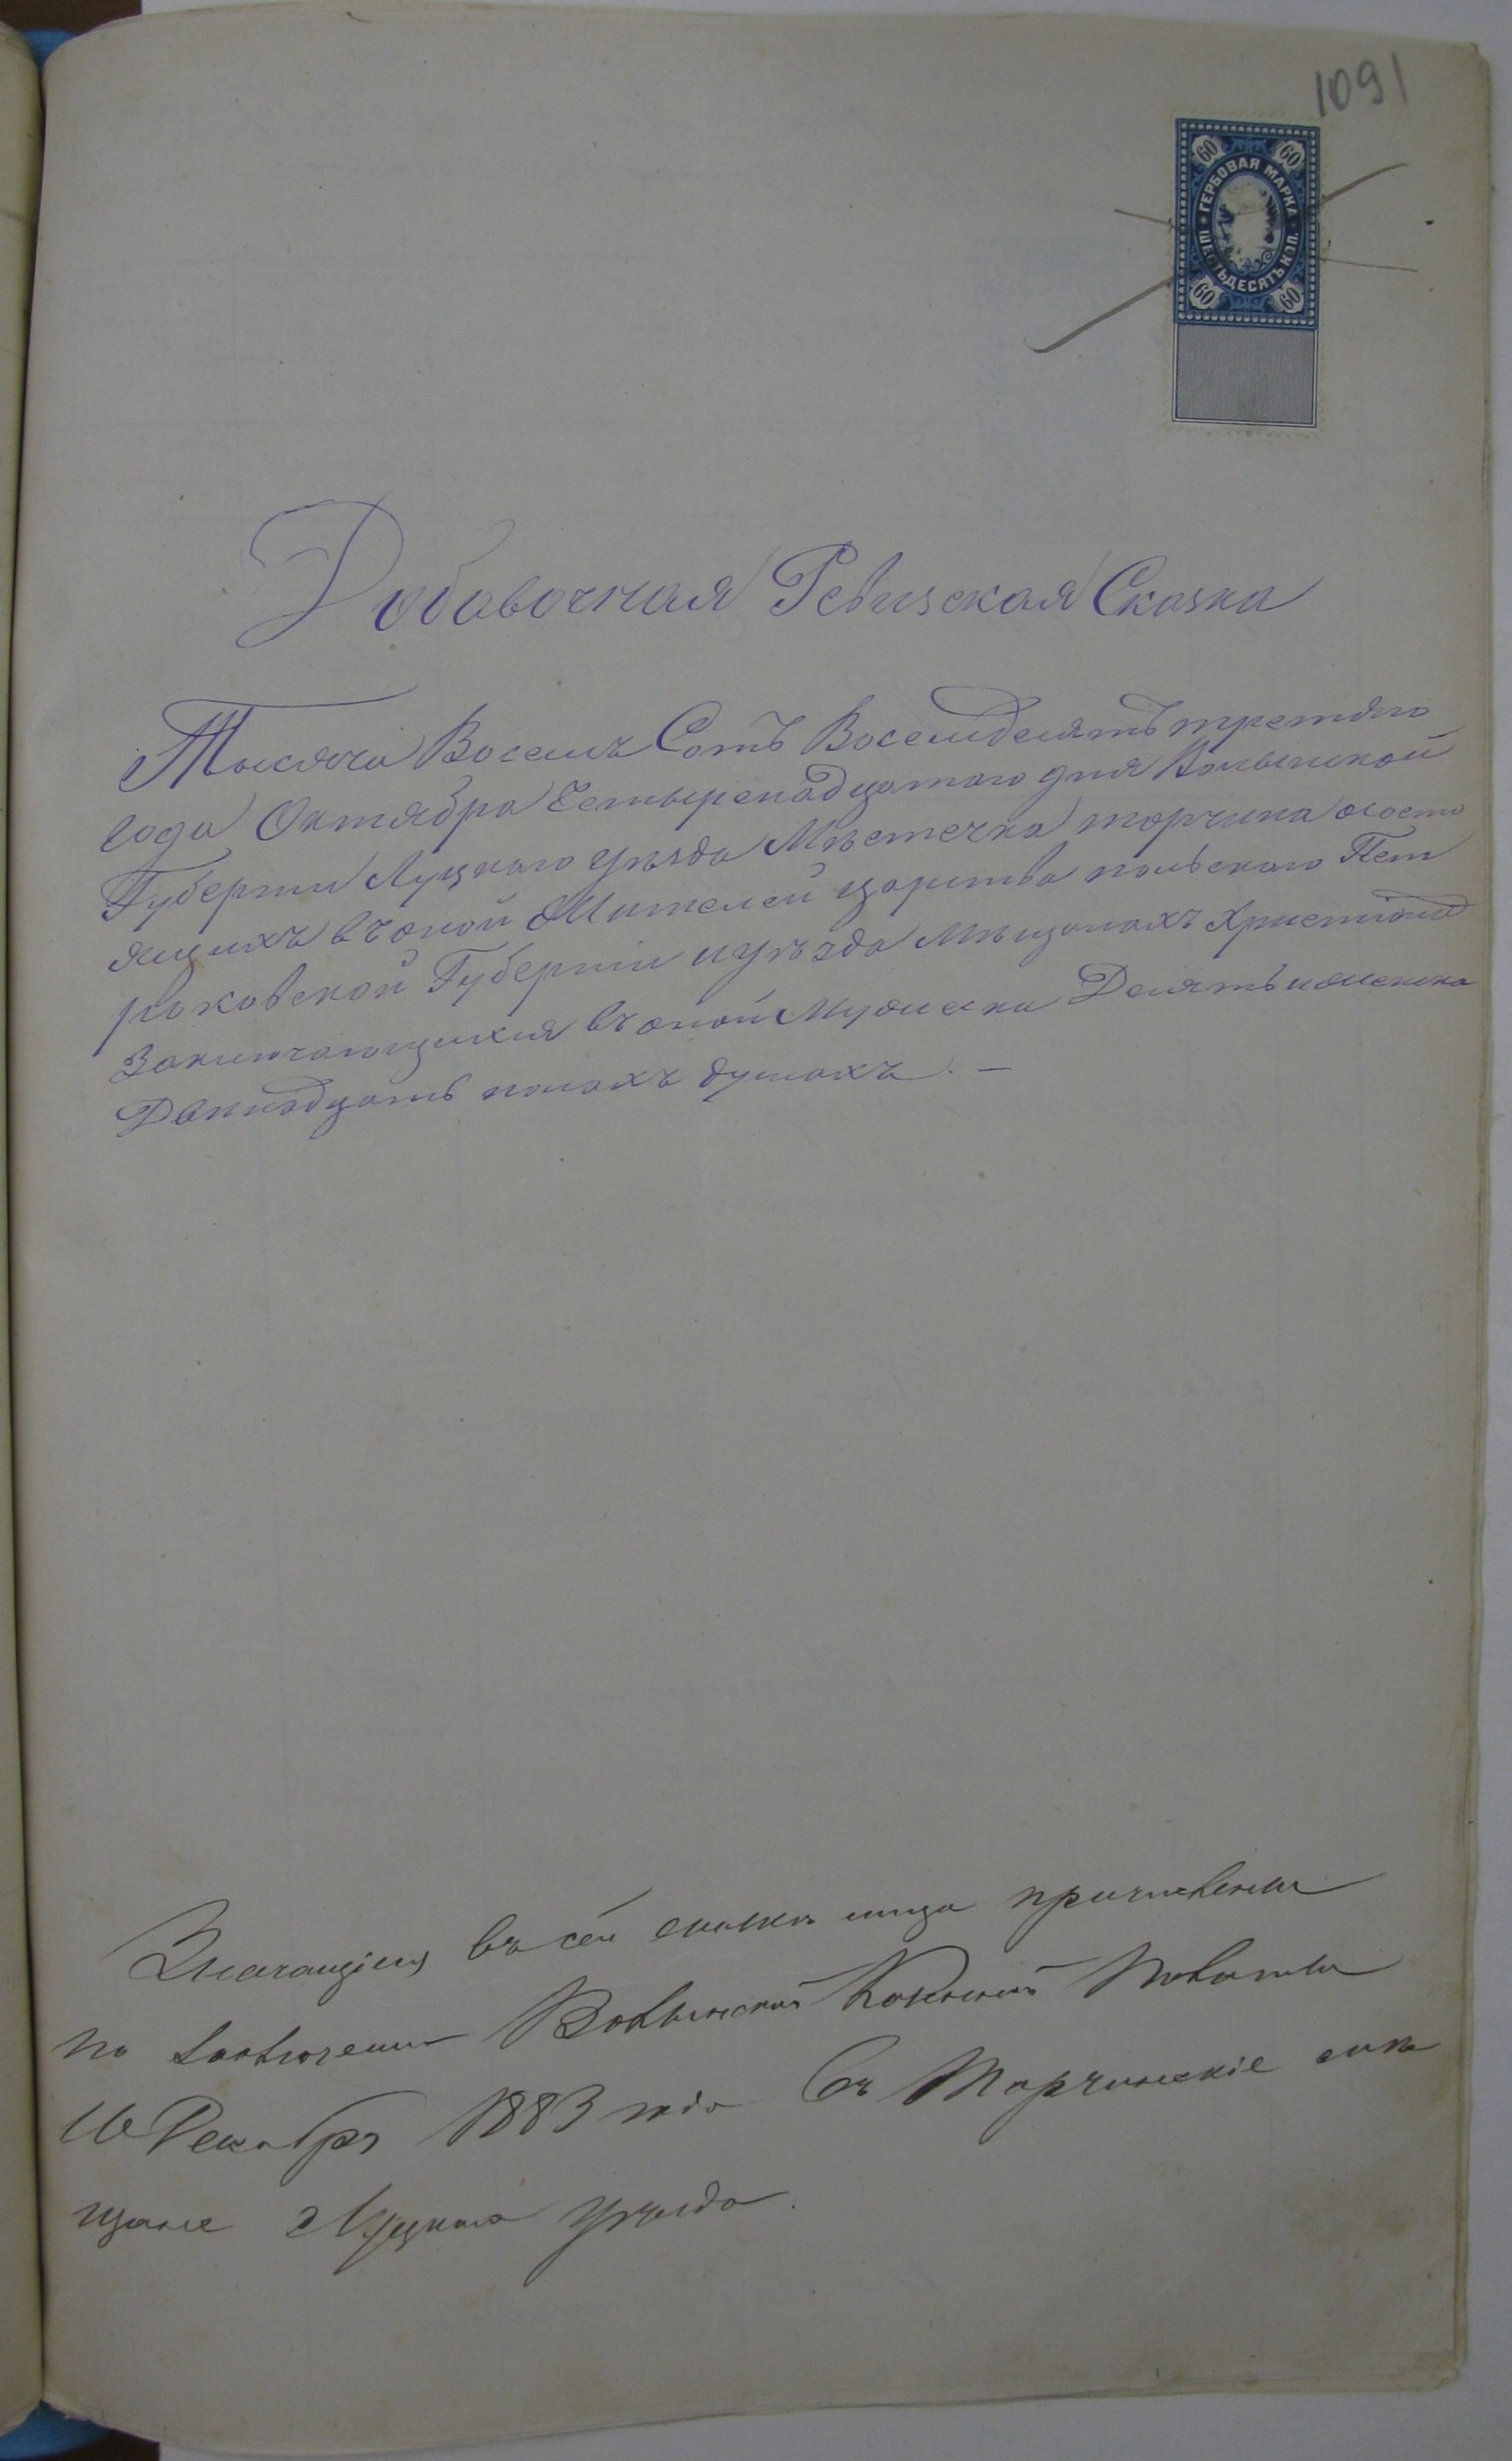 1091
60 60
ГЕРБОВАЯ МАРКА
ШЕСТЬДЕСЯТЪ КОП.
60 60
Добавочная Ревизская Сказка
Тысяча Восемъ Сотъ Восемдесятъ третяго
года Октября Четыренадцатого дня Волынской
Губернии Луцкаго уѣзда Мѣстечка торчина состо
ящихъ въ оной Жителей царства польскаго Пет
роковской Губернии и уѣзда Мѣщанахъ Християнъ
Заключающихся въ оной Мужеска Десять и женска
Двенадцать полахъ душахъ. —
Значащіеся въ сей сказкѣ лица причислены
по Волынской Казенной Палаты
16 Декабря 1883 года въ Торчинскіе мѣ
щане Луцкаго уѣзда.